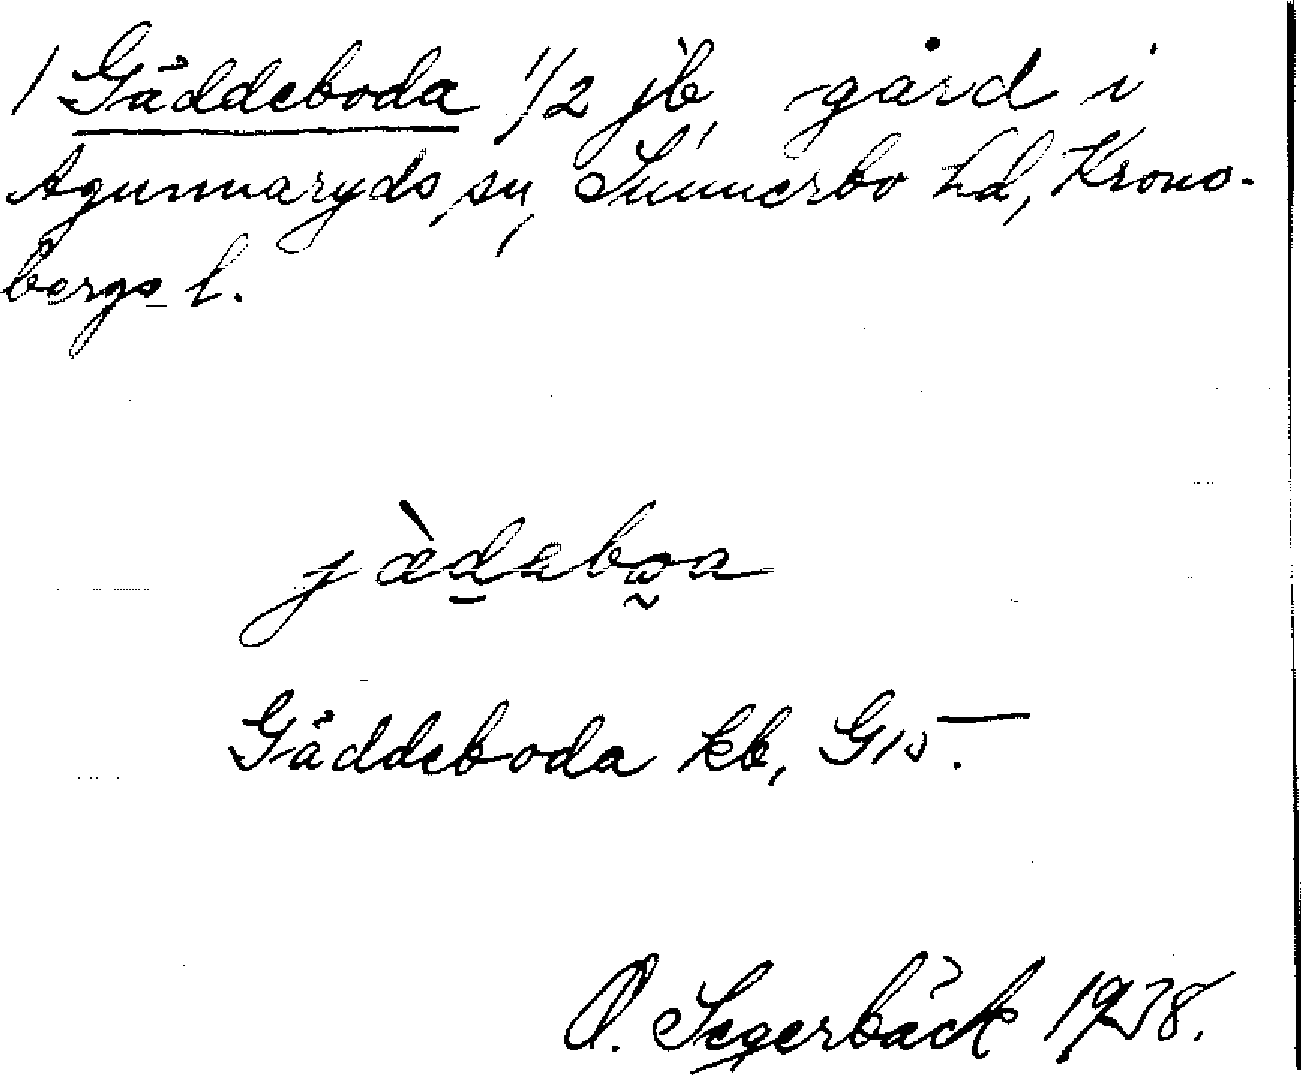 1 Gäddeboda 1/2 jb, gård i
Agunnaryds sn, Sunnerbo hd, Krono-
bergs l.
jæ̀dəbωa
Gäddeboda kb, G15.
O. Segerbäck 1938.